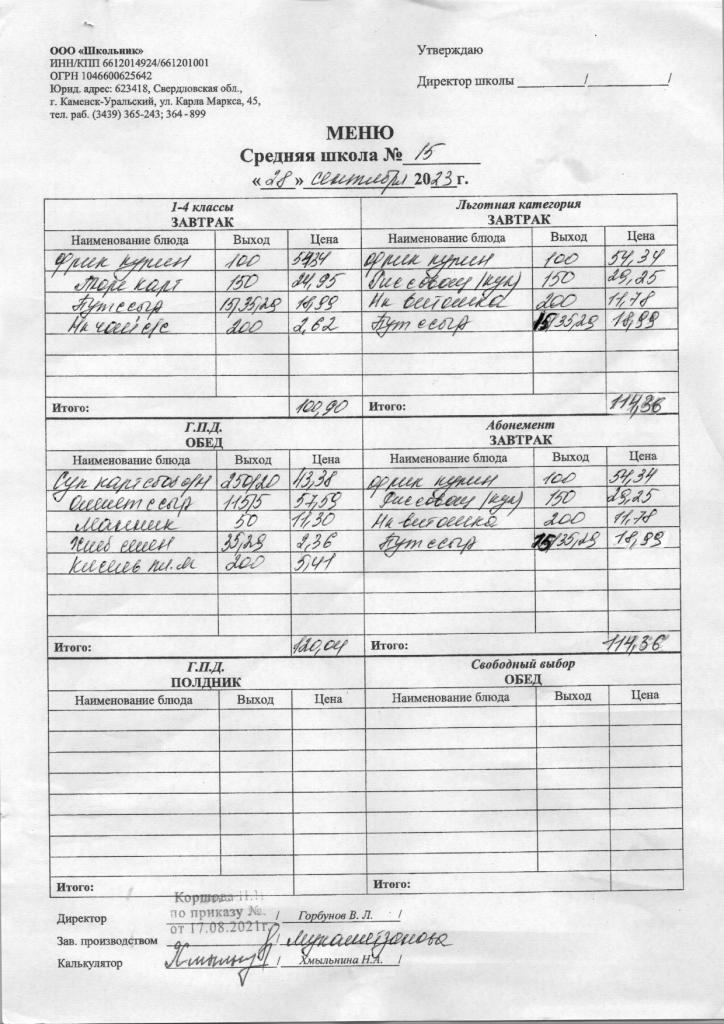 ООО «Школьник»
ИНН/КПП 6612014924/661201001
ОГРН 1046600625642
Юрид. адрес: 623418, Свердловская обл.,
г. Каменск-Уральский, ул. Карла Маркса, 45,
тел. раб. (3439) 365-243; 364 - 899
Утверждаю
Директор школы ________/________/
МЕНЮ
Средняя школа № 15
« 28 » сентября 2023 г.
1-4 классы
ЗАВТРАК
Наименование блюда Выход Цена
Фрик курин 100 54,34
Пюре карт 150 24,95
Бут с сыр 15/35,29 18,99
Нк чай с/с 200 2,62
Итого: 100,90
Льготная категория
ЗАВТРАК
Наименование блюда Выход Цена
Фрик курин 100 54,34
Рис овощ (кук) 150 29,25
Нк витошка 200 11,78
Бут с сыр 15/35,29 18,99
Итого: 114,36
Г.П.Д.
ОБЕД
Наименование блюда Выход Цена
Суп карт 250/20 43,38
Омлет с сыр 115/5 57,59
Манник 50 11,30
Хлеб 35,29 2,36
Кисель пл.м 200 5,41
Итого: 120,04
Абонемент
ЗАВТРАК
Наименование блюда Выход Цена
Фрик курин 100 54,34
Рис овощ (кук) 150 29,25
Нк витошка 200 11,78
Бут с сыр 15/35,29 18,99
Итого: 114,36
Г.П.Д.
ПОЛДНИК
Наименование блюда Выход Цена
Итого:
Свободный выбор
ОБЕД
Наименование блюда Выход Цена
Итого:
Коршова Н.Н
по приказу №.
от 17.08.2021г.
Директор / Горбунов В. Л. /
Зав. производством / Мухаметзянова
Калькулятор / Хмыльнина Н.А. /